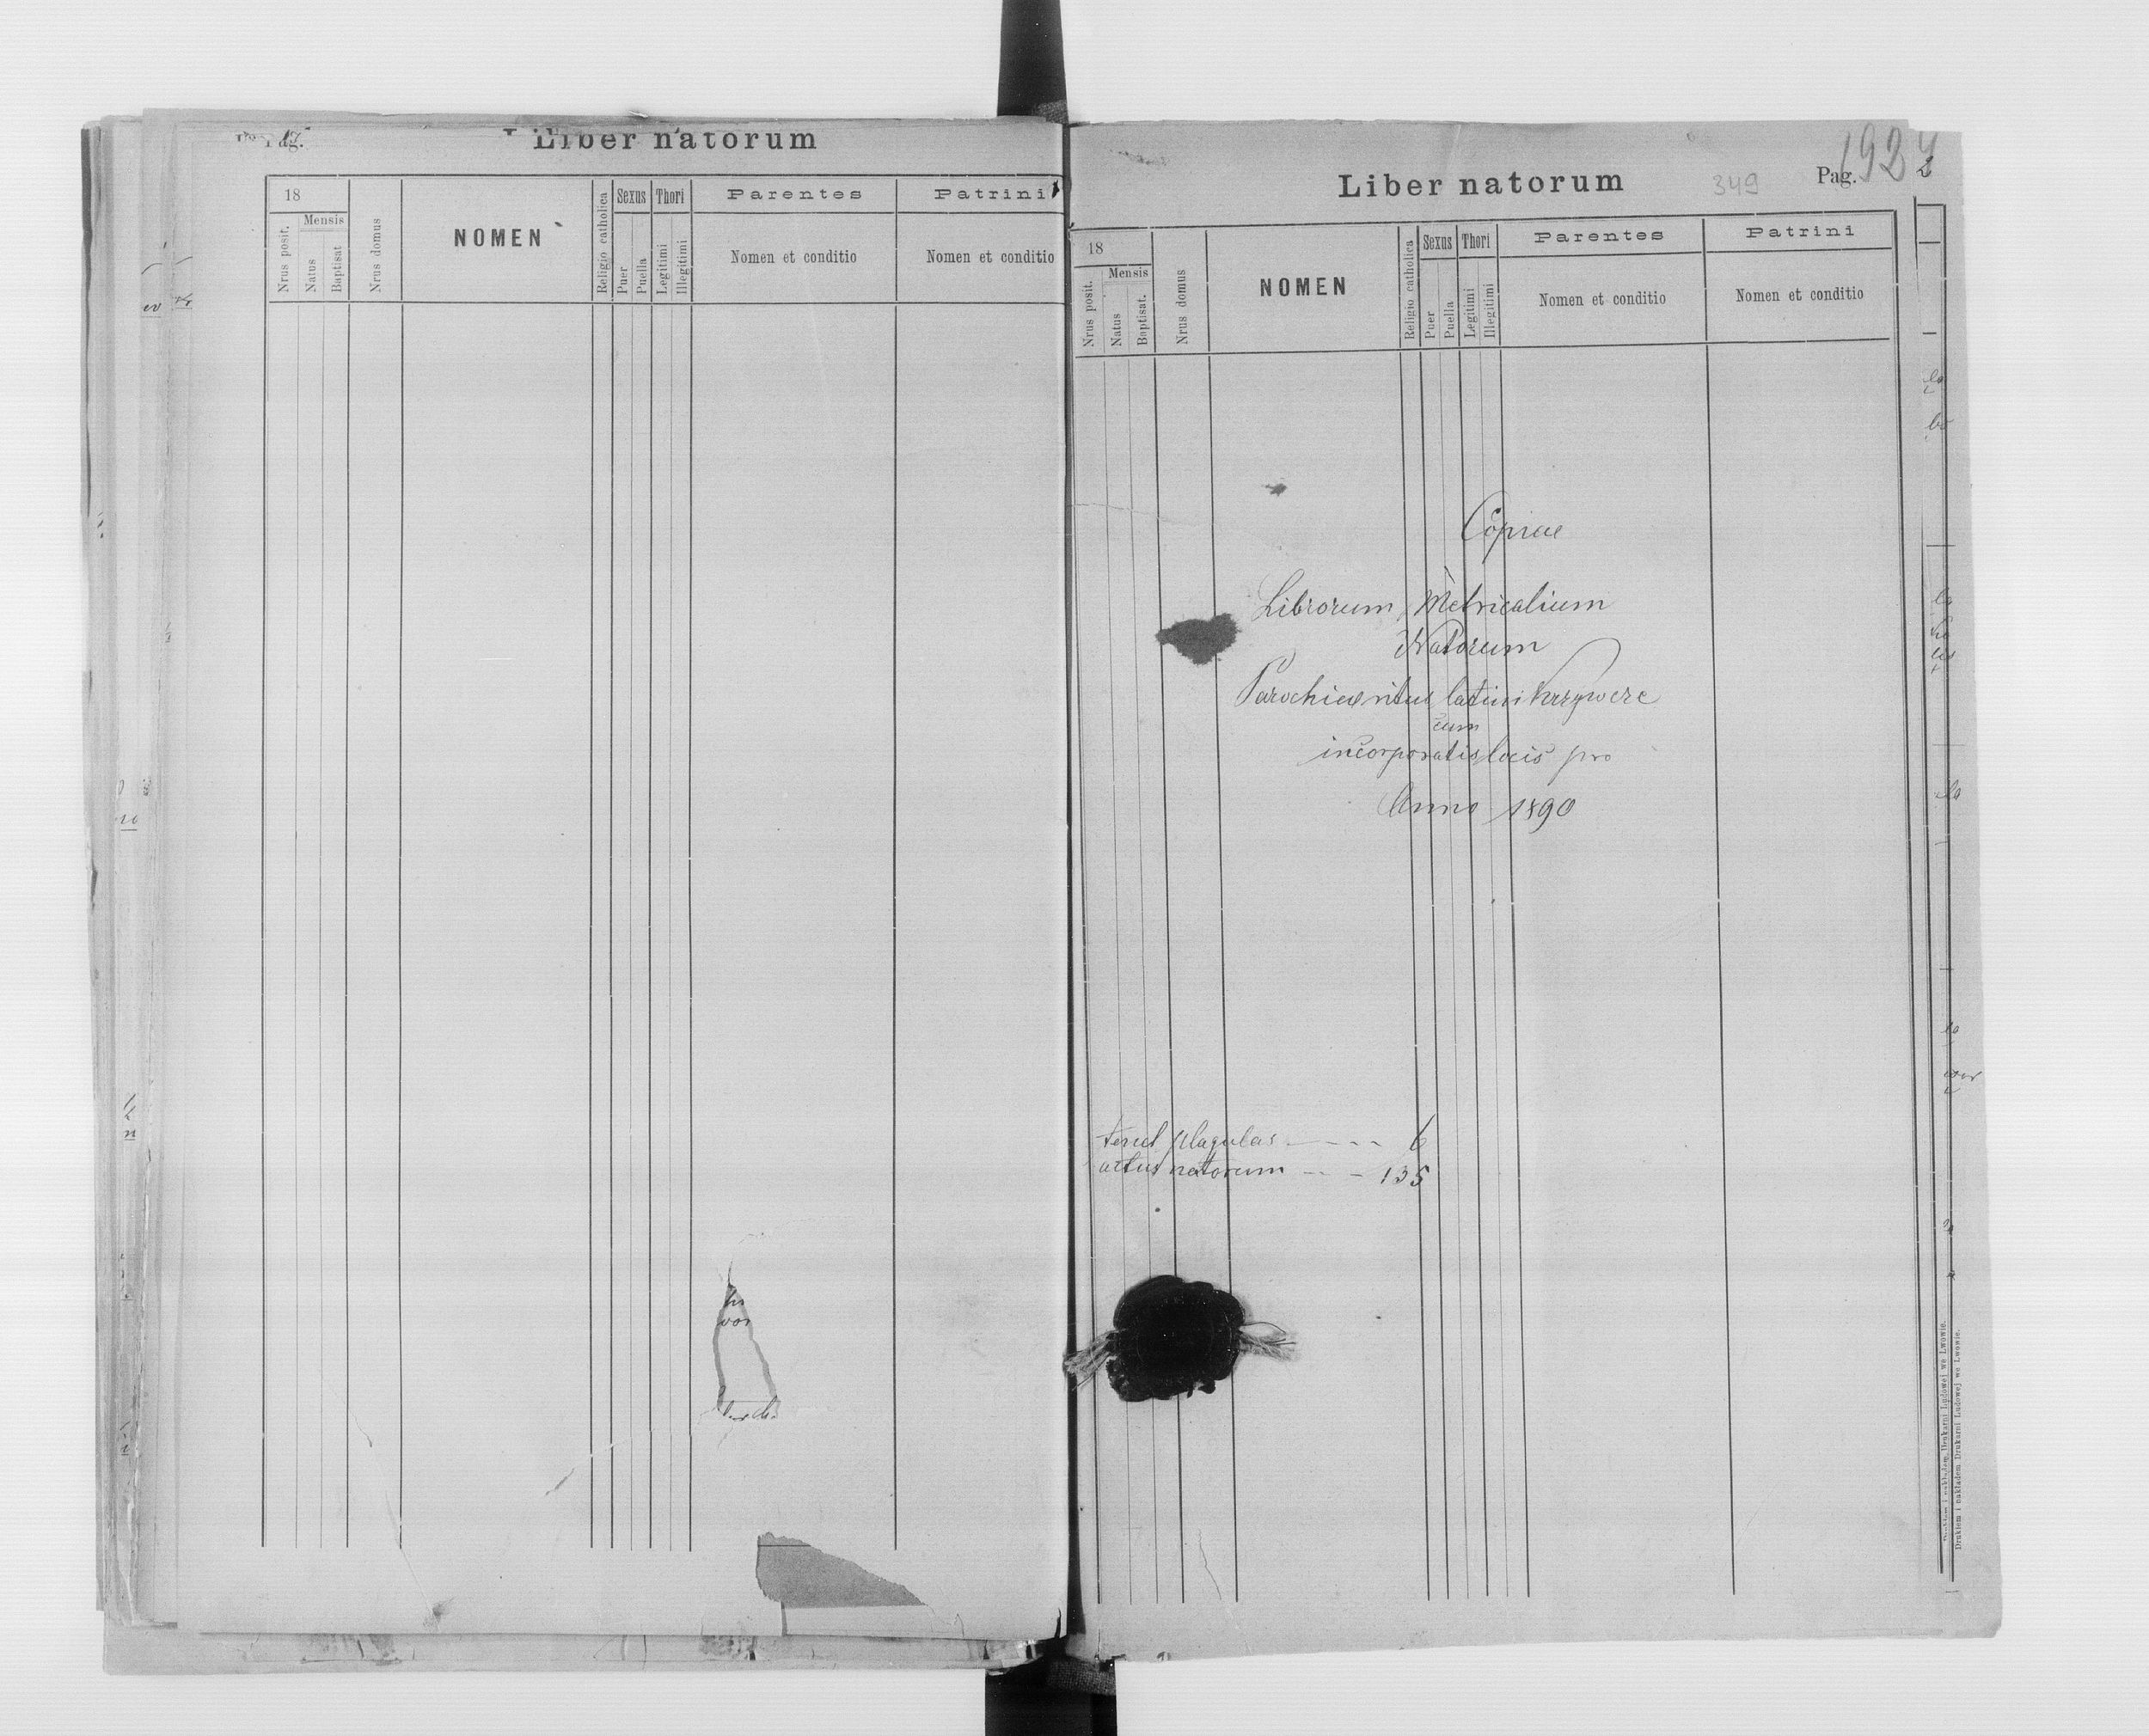 Pag.
Liber natorum
18
Mensis
Nrus posit.
Natus
Baptisat
Nrus domus
NOMEN
Religio catholica
Sexus
Puer
Puella
Thori
Legitimi
Illegitimi
Parentes
Nomen et conditio
Patrini
Nomen et conditio
Liber natorum
349
Pag. 192
18
Mensis
Nrus posit.
Natus
Baptisat.
Nrus domus
NOMEN
Religio catholica
Sexus
Puer
Puella
Thori
Legitimi
Illegitimi
Parentes
Nomen et conditio
Patrini
Nomen et conditio
Copiae
Librorum Metricalium
Natorum
Parochiae ritus latini Krzywcze
cum
incorporatis locis pro
Anno 1890
tenet plagulas - - - - 6
actus natorum - - - 135
Drukiem i nakładem Drukarni Ludowej we Lwowie.
Drukiem i nakładem Drukarni Ludowej we Lwowie.